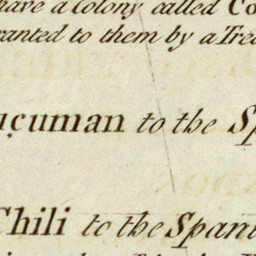 have a Colony called Co
ranted to them by a Trea
uçuman to the Sp
Chili to the Spani